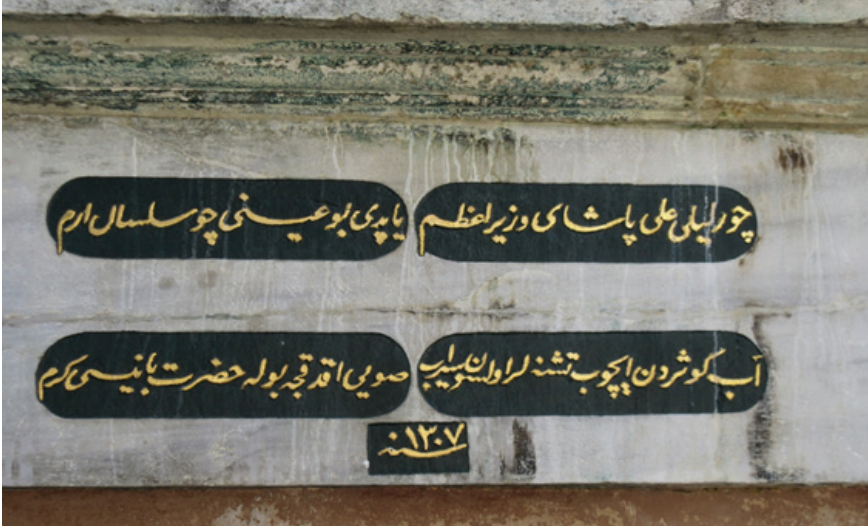 چورلیلی علی پاشای وزیر اعظم
یاپدی بو عینی چو سلسال ارم
آب کوثردن ایچوب تشنه لر اولسون سیراب
صویی اقدقجه بوله حضرت بانیسی کرم
سنه ۱۳۰۷